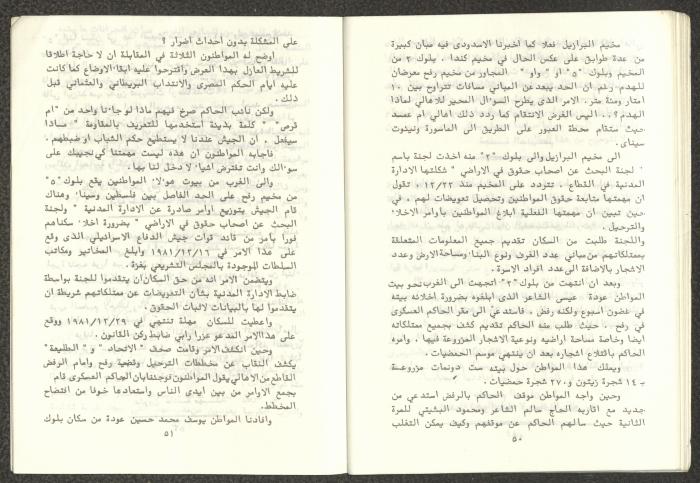 مخيم البرازيل فعلا كما اخبرنا الاسدودى فيه مبان كبيرة
من عدة طوابق على عكس الحال في مخيم كندا . بلوك ٢ من
المخيم وبلوك "٥" او " واو " المجاور من مخيم رفح معرضان
للهدم رغم ان الحد يبعد عن المباني مسافات تتراوح بين ١٠
امتار ومئة متر . الامر الذي يطرح السوءال المحير للاهالي لماذا
الهدم ؟ .. اليس الغرض الانتقام كما ردد ذلك اهالي ام عسد
حيث ستقام محطة العبور على الطريق الى الماسورة ونيئوت
سيناى .
الى مخيم البرازيل والى بلوك "٢" منه اخذت لجنة باسم
" لجنة البحث عن اصحاب حقوق في الاراضي " شكلتها الادارة
المدنية في القطاع . تتردد على المخيم منذ ١٢/٢٢ ، تقول
ان مهمتها متابعة حقوق المواطنين وتحصيل تعويضات لهم . في
حين تبين ان مهمتها الفعلية ابلاغ المواطنين باوامر الاخلاء
والترحيل .
واللجنة طلبت من السكان تقديم جميع المعلومات المتعلقة
بممتلكاتهم من مباني عدد الغرف ونوع البناء ومساحة الارض وعدد
الاشجار بالاضافة الى عدد افراد الاسرة .
وبعد ان انتهت من بلوك "٢" اتجهت الى الغرب نحو بيت
المواطن عودة عيسى الشاعر الذى ابلغوه بضرورة اخلائه بيته
في غضون اسبوع ولكنه رفض . فاستدعي الى مقر الحاكم العسكرى
في رفح . حيث طلب منه الحاكم تقديم كشف بجميع ممتلكاته
ايضا وخاصة مساحة اراضيه ونوعية الاشجار المزروعة فيها . وامره
الحاكم باقتلاع اشجاره بعد ان ينتهي موسم الحمضيات .
ويملك هذا المواطن حول بيته ست دونمات مزروعسة
ب ١٤ شجرة زيتون و ٢٧٠ شجرة حمضيات .
وحين واجه المواطن موقف الحاكم بالرفض استدعي من
جديد مع اقاربه الحاج سالم الشاعر ومحمود البشيتي للمرة
الثانية حيث سالهم الحاكم عن موقفهم وكيف يمكن التغلب
٥٠
على المشكلة بدون احداث اضرار ؟
اوضح له المواطنون الثلاثة في المقابلة ان لا حاجة اطلاقا
للشريط العازل بهذا العرض واقترحوا عليه ابقاء الاوضاع كما كانت
عليه ايام الحكم المصرى والانتداب البريطاني والعثماني قبل
ذلك .
ولكن نائب الحاكم صرخ فيهم ماذا لو جاءنا واحد من "ام
قرص " " كلمة بذيئة استخدمها للتعريف بالمقاومة " مساذا
سيفعل . ان الجيش عندنا لا يستطيع حكم الشباب او ضبطهم .
فاجابه المواطنون ان هذه ليست مهمتنا كي نجيبك على
سوءالك وانت تفترض اشياء لا دخل لنا بها .
والى الغرب من بيوت هوءلاء المواطنين يقع بلوك "٥"
من مخيم رفح على الحد الفاصل بين فلسطين وسيناء وهناك
قام الجيش بتوزيع اوامر صادرة عن الادارة المدنية " ولجنة
البحث عن اصحاب حقوق في الاراضي " بضرورة اخلاء سكناهم
فورا بامر من قائد قوات جيش الدفاع الاسرائيلي الذى وقع
على هذا الامر في ١٩٨١/١٢/١٦ وابلغ المخاتير ومكاتب
السلطات الموجودة بالمجلس التشريعي بغزة .
ويتضمن الامر انه من حق السكان ان يتقدموا للجنة بواسطة
ضابط الادارة المدنية بشأن التفويضات عن ممتلكاتهم شريطة ان
يتقدموا لها بالبيانات لاثبات الحقوق .
واعطيت للسكان مهلة تنتهي في ١٩٨١/١٢/٢٩ ووقع
على هذا الامر المدعو عزرا رابي ضابط ركن القانون .
وحين انكشف الامر وقامت صحف "الاتحاد " و " الطليعة"
بكشف النقاب عن مخططات الترحيل وقضية رفح وامام الرفض
القاطع من الاهالي يقول المواطنون فوجئنا بان الحاكم العسكرى قام
بجمع الاوامر من بين ايدى الناس واستعادها خوفا من افتضاح
المخطط .
وافادنا المواطن يوسف محمد حسين عودة من سكان بلوك
٥١